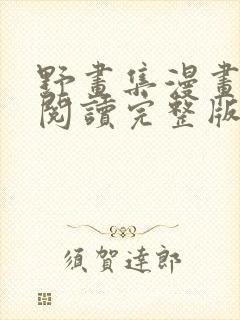 野畫集漫畫
閱讀完整版
須賀達郎